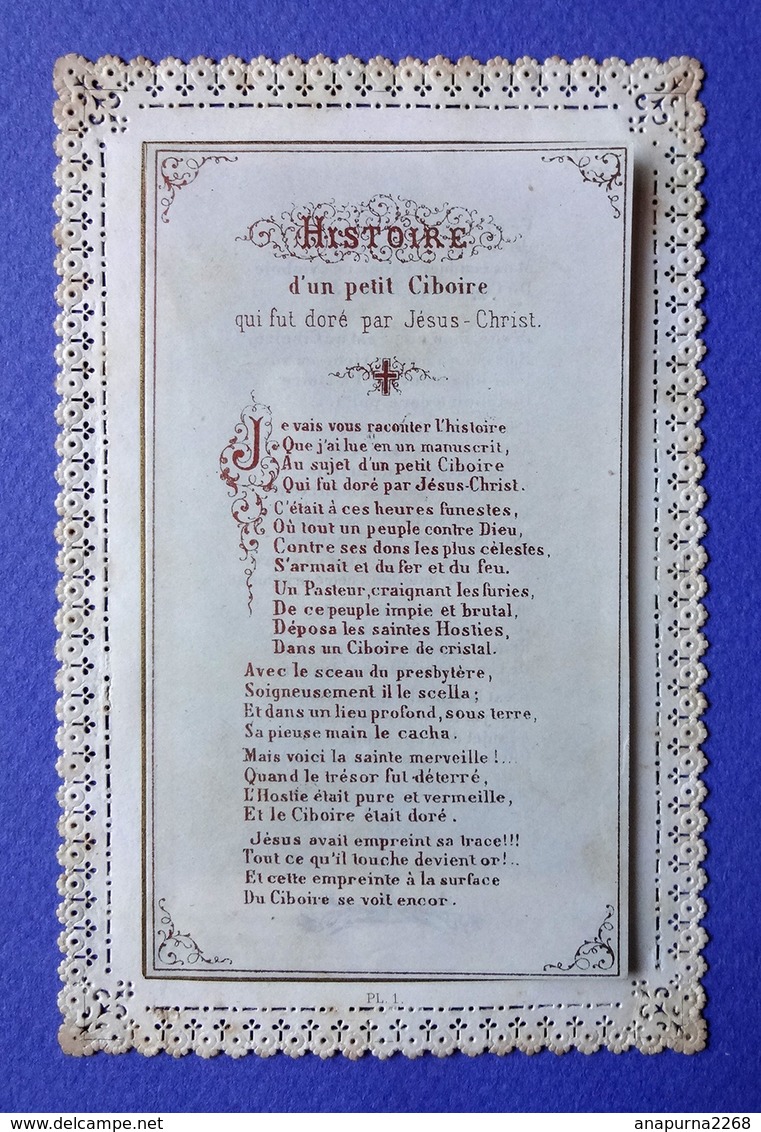 HISTOIRE
d'un petit Ciboire
qui fut doré par Jésus-Christ.
Je vais vous raconter l'histoire
Que j'ai lue en un manuscrit,
Au sujet d'un petit Ciboire
Qui fut doré par Jésus-Christ.
C'était à ces heures funestes,
Où tout un peuple contre Dieu,
Contre ses dons les plus célestes,
S'armait et du fer et du feu.
Un Pasteur, craignant les furies,
De ce peuple impie et brutal,
Déposa les saintes Hosties,
Dans un Ciboire de cristal.
Avec le sceau du presbytère,
Soigneusement il le scella;
Et dans un lieu profond, sous terre,
Sa pieuse main le cacha.
Mais voici la sainte merveille!...
Quand le trésor fut déterré,
L'Hostie était pure et vermeille,
Et le Ciboire était doré.
Jésus avait empreint sa trace!!!
Tout ce qu'il touche devient or!..
Et cette empreinte à la surface
Du Ciboire se voit encor.
PL. 1.
delcampe.net
anapurna2268